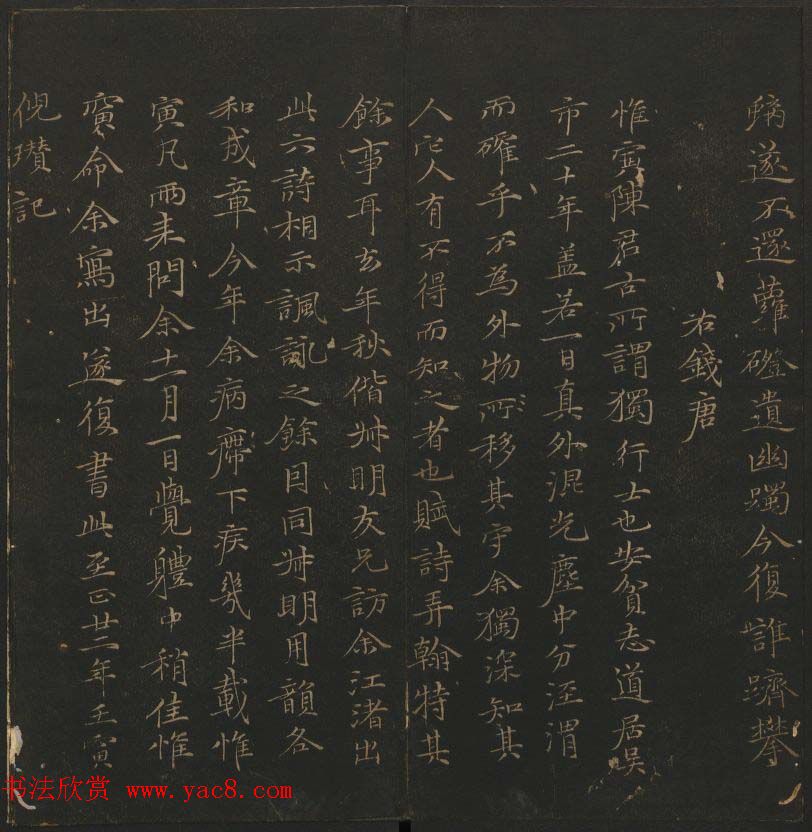 鵠遂不還蘿磴遺幽躅今復誰躋攀
右錢唐
惟寅陳君古所謂獨行士也安貧志道居吳
市二十年蓋若一日真外混光塵中分涇渭
而確乎不為外物所移其守余獨深知其
人它人有不得而知之者也賦詩弄翰特其
餘事耳去年秋偕叔明友兄訪余江渚出
此六詩相示諷詠之餘因同叔明用韻各
和成章今年余病滯下疾幾半載惟
寅凡兩来問余十一月一日覺軆中稍佳惟
寅命余寫出遂復書此至正廿二年壬寅
倪瓚記
书法欣赏 www.yac8.com